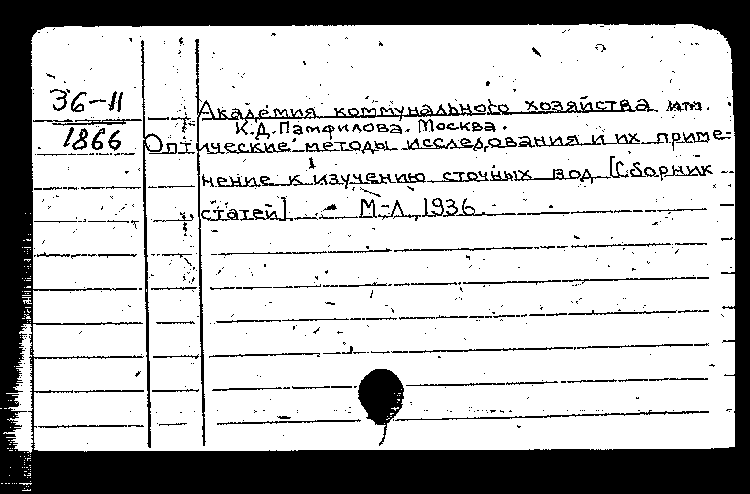 36-11
1866
Академия коммунального хозяйства им.
К.Д. Памфилова. Москва.
Оптические методы исследования и их приме-
нение к изучению сточных вод [Сборник
статей]. - М-Л, 1936.